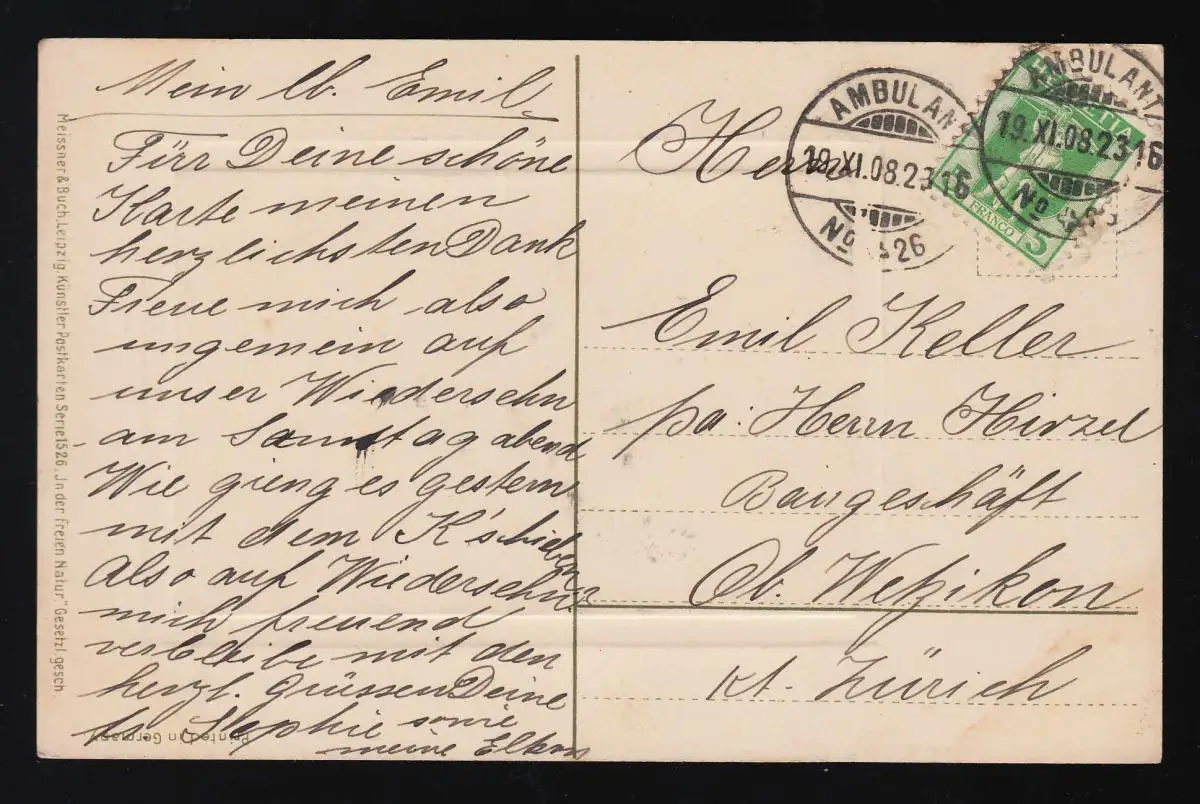 Mein lb. Emil,
Fürr Deine schöne
Karte meinen
herzlichsten Dank
Freue mich also
ungemein auf
unser Wiedersehn
am Samstag abend
Wie gieng es gestern
mit dem K'schieben
Also auf Wiedersehn
mich freuend
verbleibe mit den
herzl. Grüssen Deine
Sophie sowie
meine Eltern
Meissner & Buch, Leipzig. Künstler Postkarten Serie 1526. „In der freien Natur." Gesetzl. gesch.
Printed in Germany
AMBULANT
19.XI.08.23 16
No 26
AMBULANT
19.XI.08.23 16
No
HELVETIA
FRANCO 5
Herrn
Emil Keller
pa: Herrn Hirzel
Baugeschäft
Ob. Wetzikon
Kt. Zürich